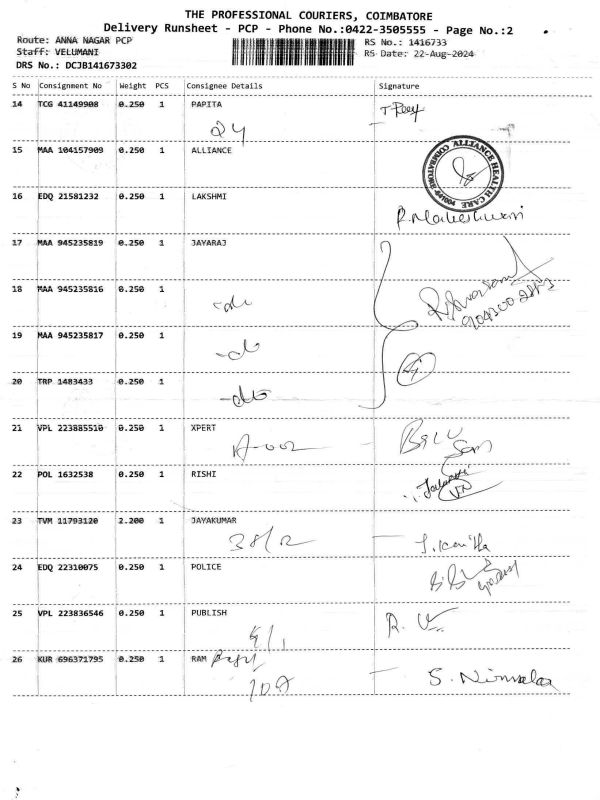 THE PROFESSIONAL COURIERS, COIMBATORE
Delivery Runsheet - PCP - Phone No.:0422-3505555 - Page No.:2
Route: ANNA NAGAR PCP RS No.: 1416733
Staff: VELUMANI RS Date: 22-Aug-2024
DRS No.: DCJB141673302
S No Consignment No Weight PCS Consignee Details Signature
14 TCG 41149908 0.250 1 PAPITA
24
15 MAA 104157909 0.250 1 ALLIANCE
ALLIANCE HEALTH CARE COIMBATORE
16 EDQ 21581232 0.250 1 LAKSHMI
R. Maheshwari
17 MAA 945235819 0.250 1 JAYARAJ
18 MAA 945235816 0.250 1
-do
19 MAA 945235817 0.250 1
-do
4
20 TRP 1483433 0.250 1
-do
21 VPL 223885510 0.250 1 XPERT
A-002
22 POL 1632538 0.250 1 RISHI
23 TVM 11793120 2.200 1 JAYAKUMAR
38/2
24 EDQ 22310075 0.250 1 POLICE
25 VPL 223836546 0.250 1 PUBLISH
26 KUR 696371795 0.250 1 RAM
S. Nirmalaa